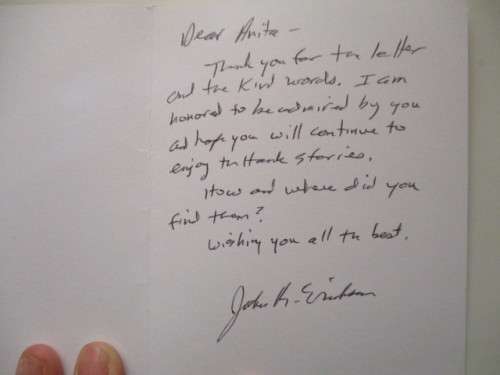 Dear Anita -
Thank you for the letter
and the kind words. I am
honored to be admired by you
and hope you will continue to
enjoy the Hank stories.
How and where did you
find them?
Wishing you all the best.
John R. Erickson